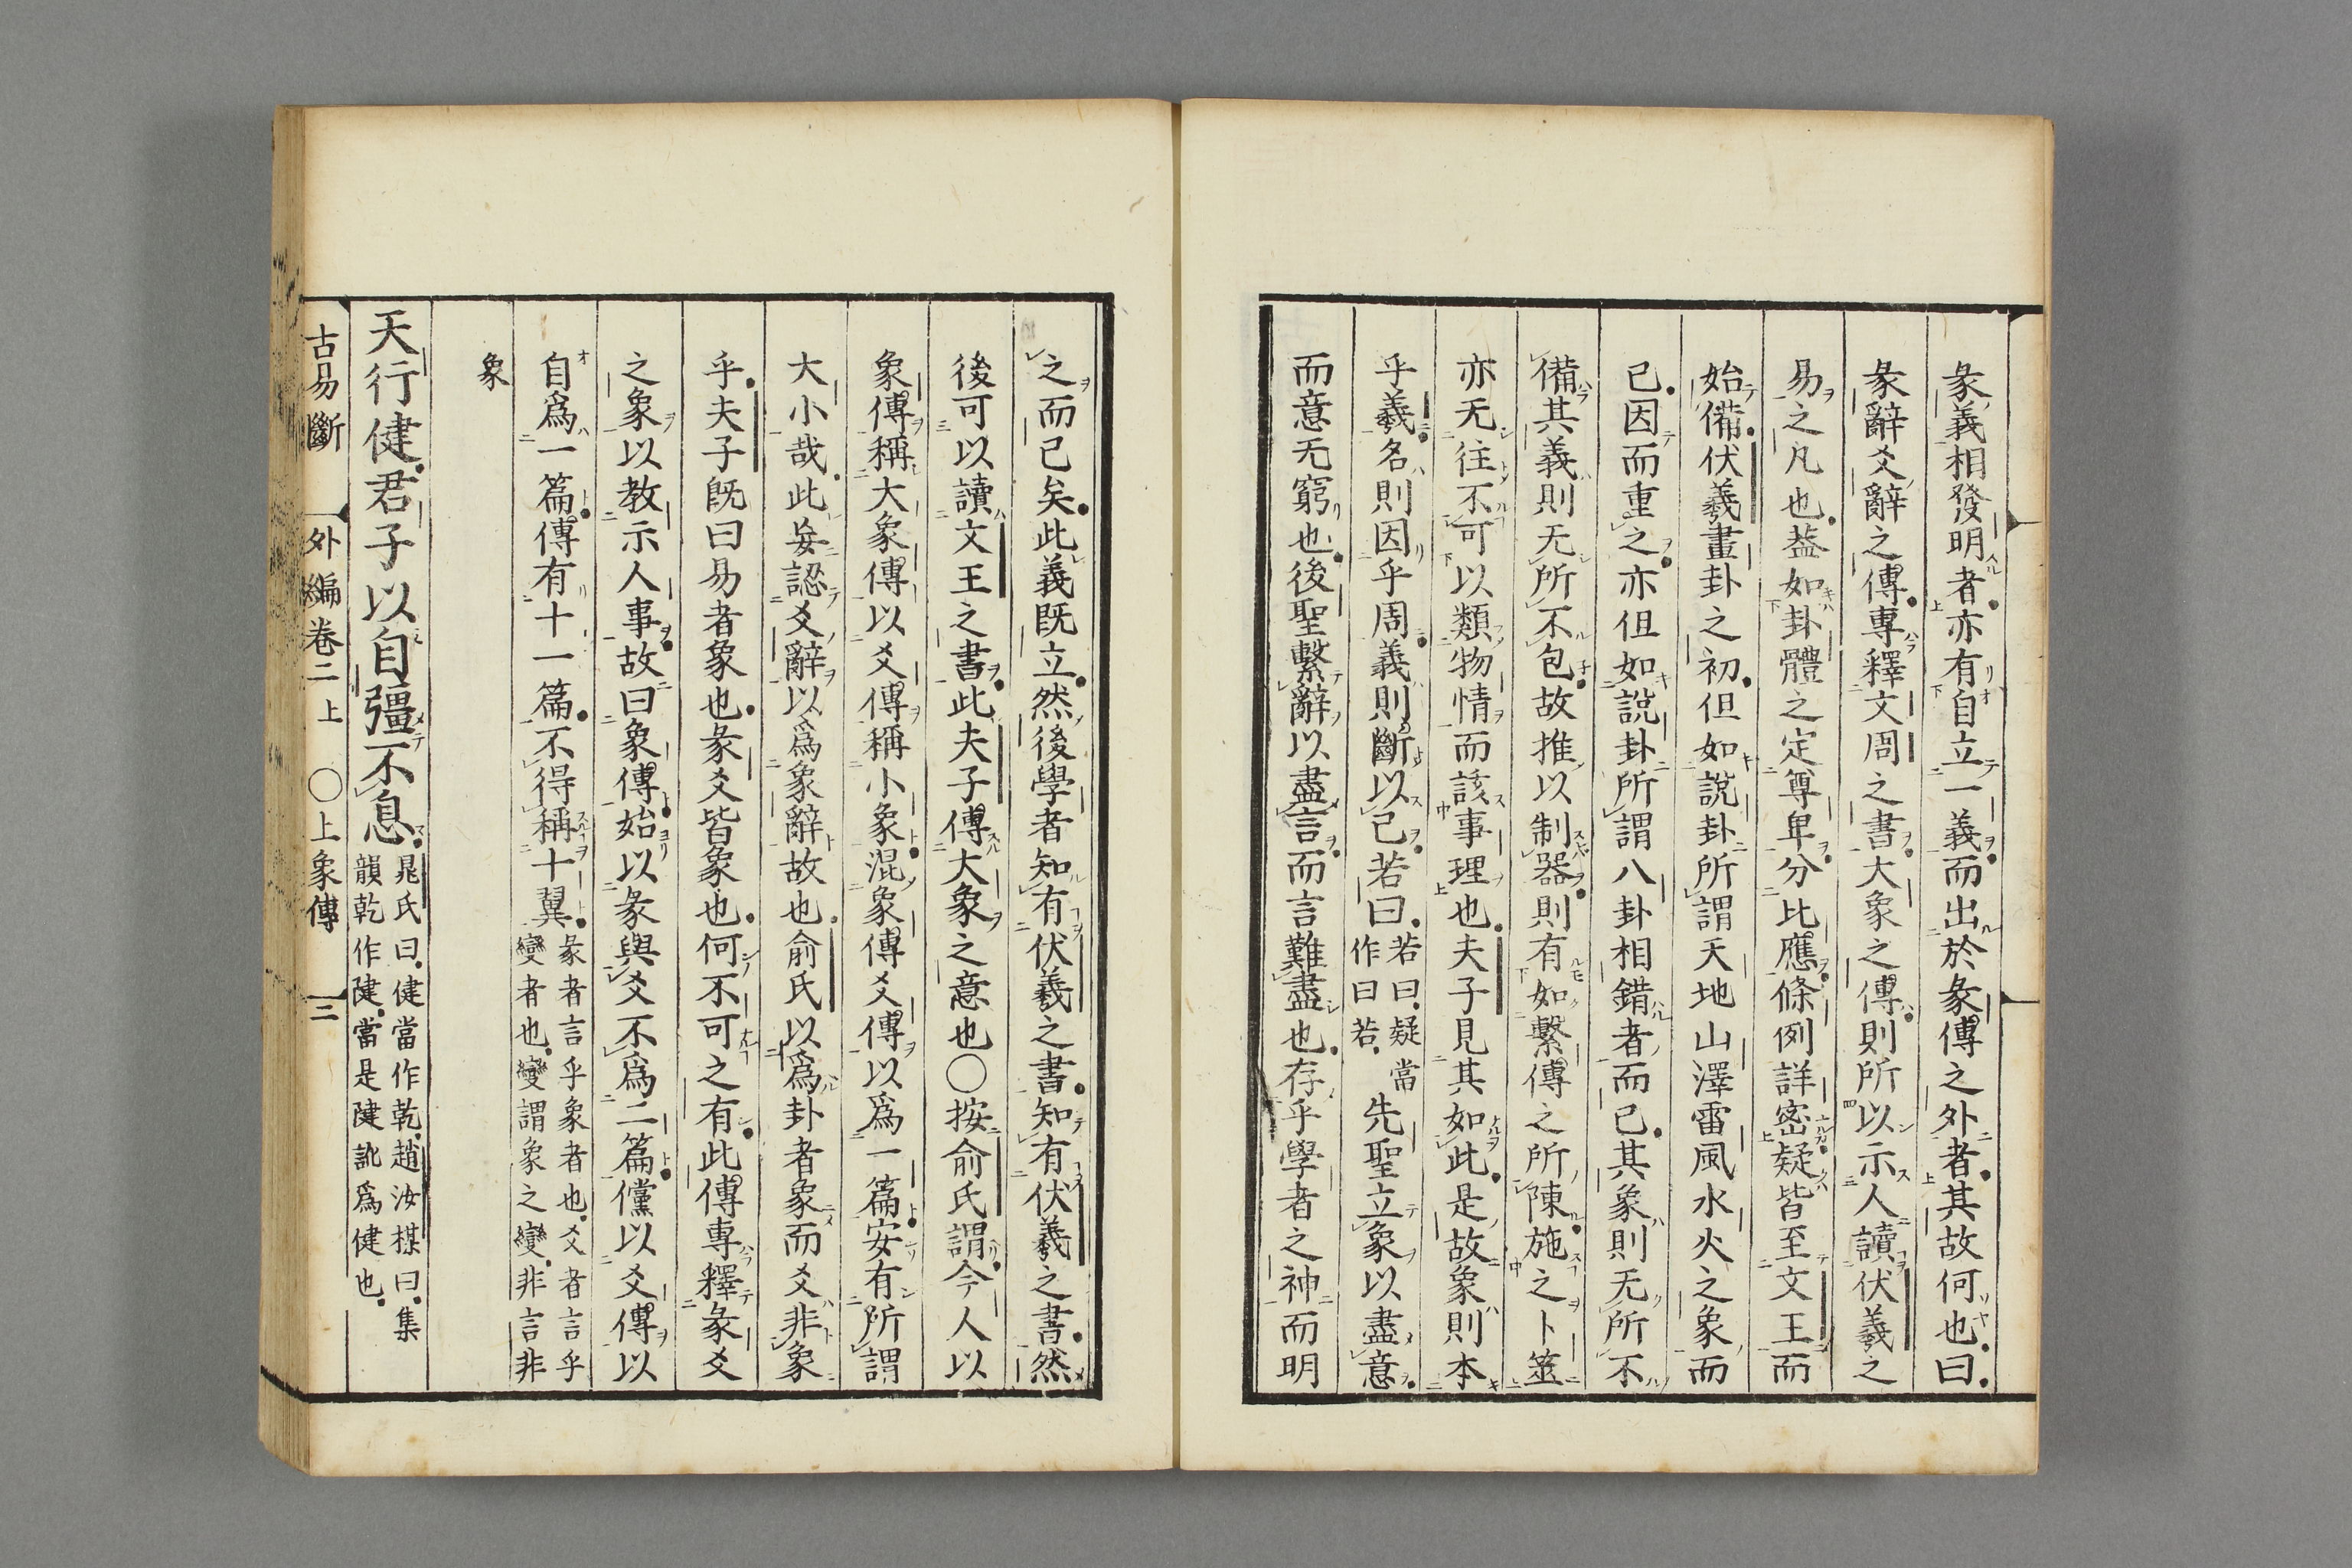 彖義相發明者亦有自立一義而出於彖傳之外者其故何也曰
彖辭爻辭之傳專釋文周之書大象之傳則所以示人讀伏羲之
易之凡也葢如卦體之定尊卑分比應條例詳密疑皆至文王而
始備伏羲畫卦之初但如說卦所謂天地山澤雷風水火之象而
已因而重之亦但如說卦所謂八卦相錯者而已其象則无所不
備其義則无所不包故推以制器則有如繫傳之所陳施之卜筮
亦无往不可以類物情而該事理也夫子見其如此是故象則本
乎羲名則因乎周義則斷以己若曰
若曰疑當
作曰若
先聖立象以盡意
而意无窮也後聖繫辭以盡言而言難盡也存乎學者之神而明
之而已矣此義既立然後學者知有伏羲之書知有伏羲之書然
後可以讀文王之書此夫子傳大象之意也〇按俞氏謂今人以
象傳稱大象傳以爻傳稱小象混象傳爻傳以爲一篇安有所謂
大小哉此妄認爻辭以爲象辭故也俞氏以爲卦者象而爻非象
乎夫子既曰易者象也彖爻皆象也何不可之有此傳專釋彖爻
之象以教示人事故曰象傳始以彖與爻不爲二篇儻以爻傳以
自爲一篇傳有十一篇不得稱十翼
彖者言乎象者也爻者言乎
變者也變謂象之變非言非
象
天行健君子以自彊不息
晁氏曰健當作乾趙汝楳曰集
韻乾作健當是健訛爲健也
古易斷 外編卷二上 〇上象傳 二